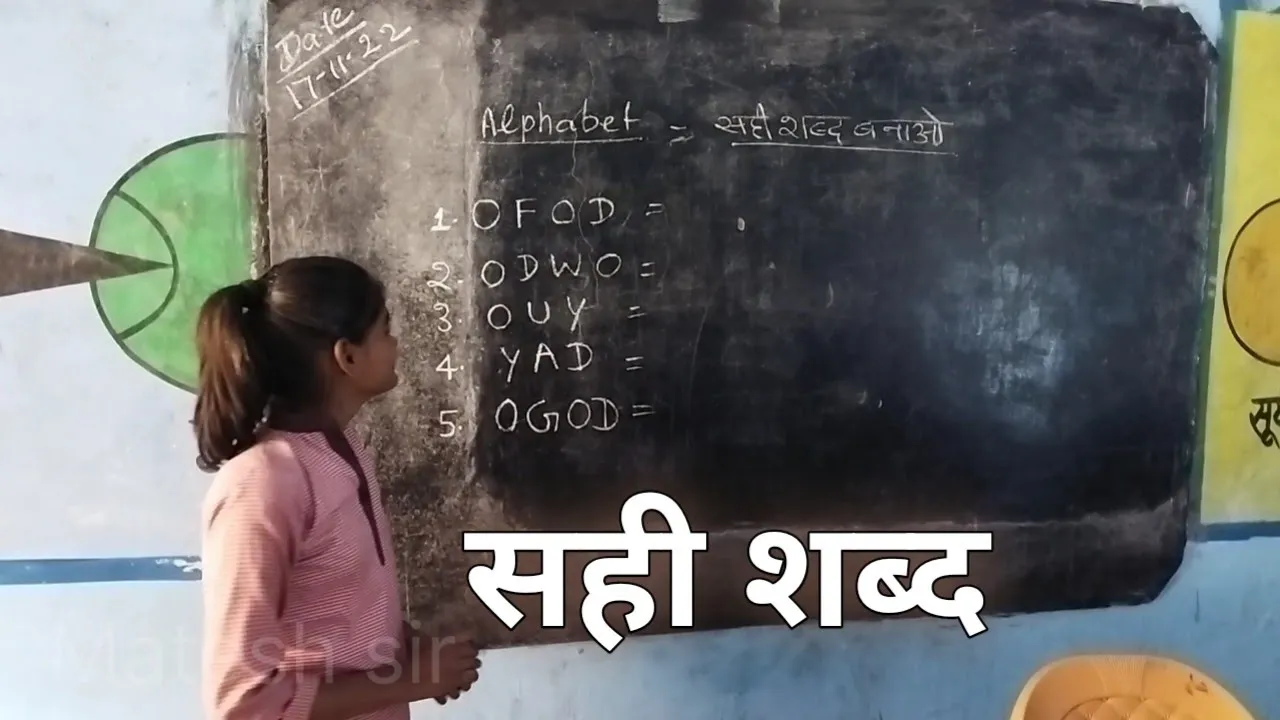 Date
17-11-22
Alphabet = सही शब्द बनाओ
1. OFOD =
2. ODWO =
3. OUY =
4. YAD =
5. OGOD =
सही शब्द
sir